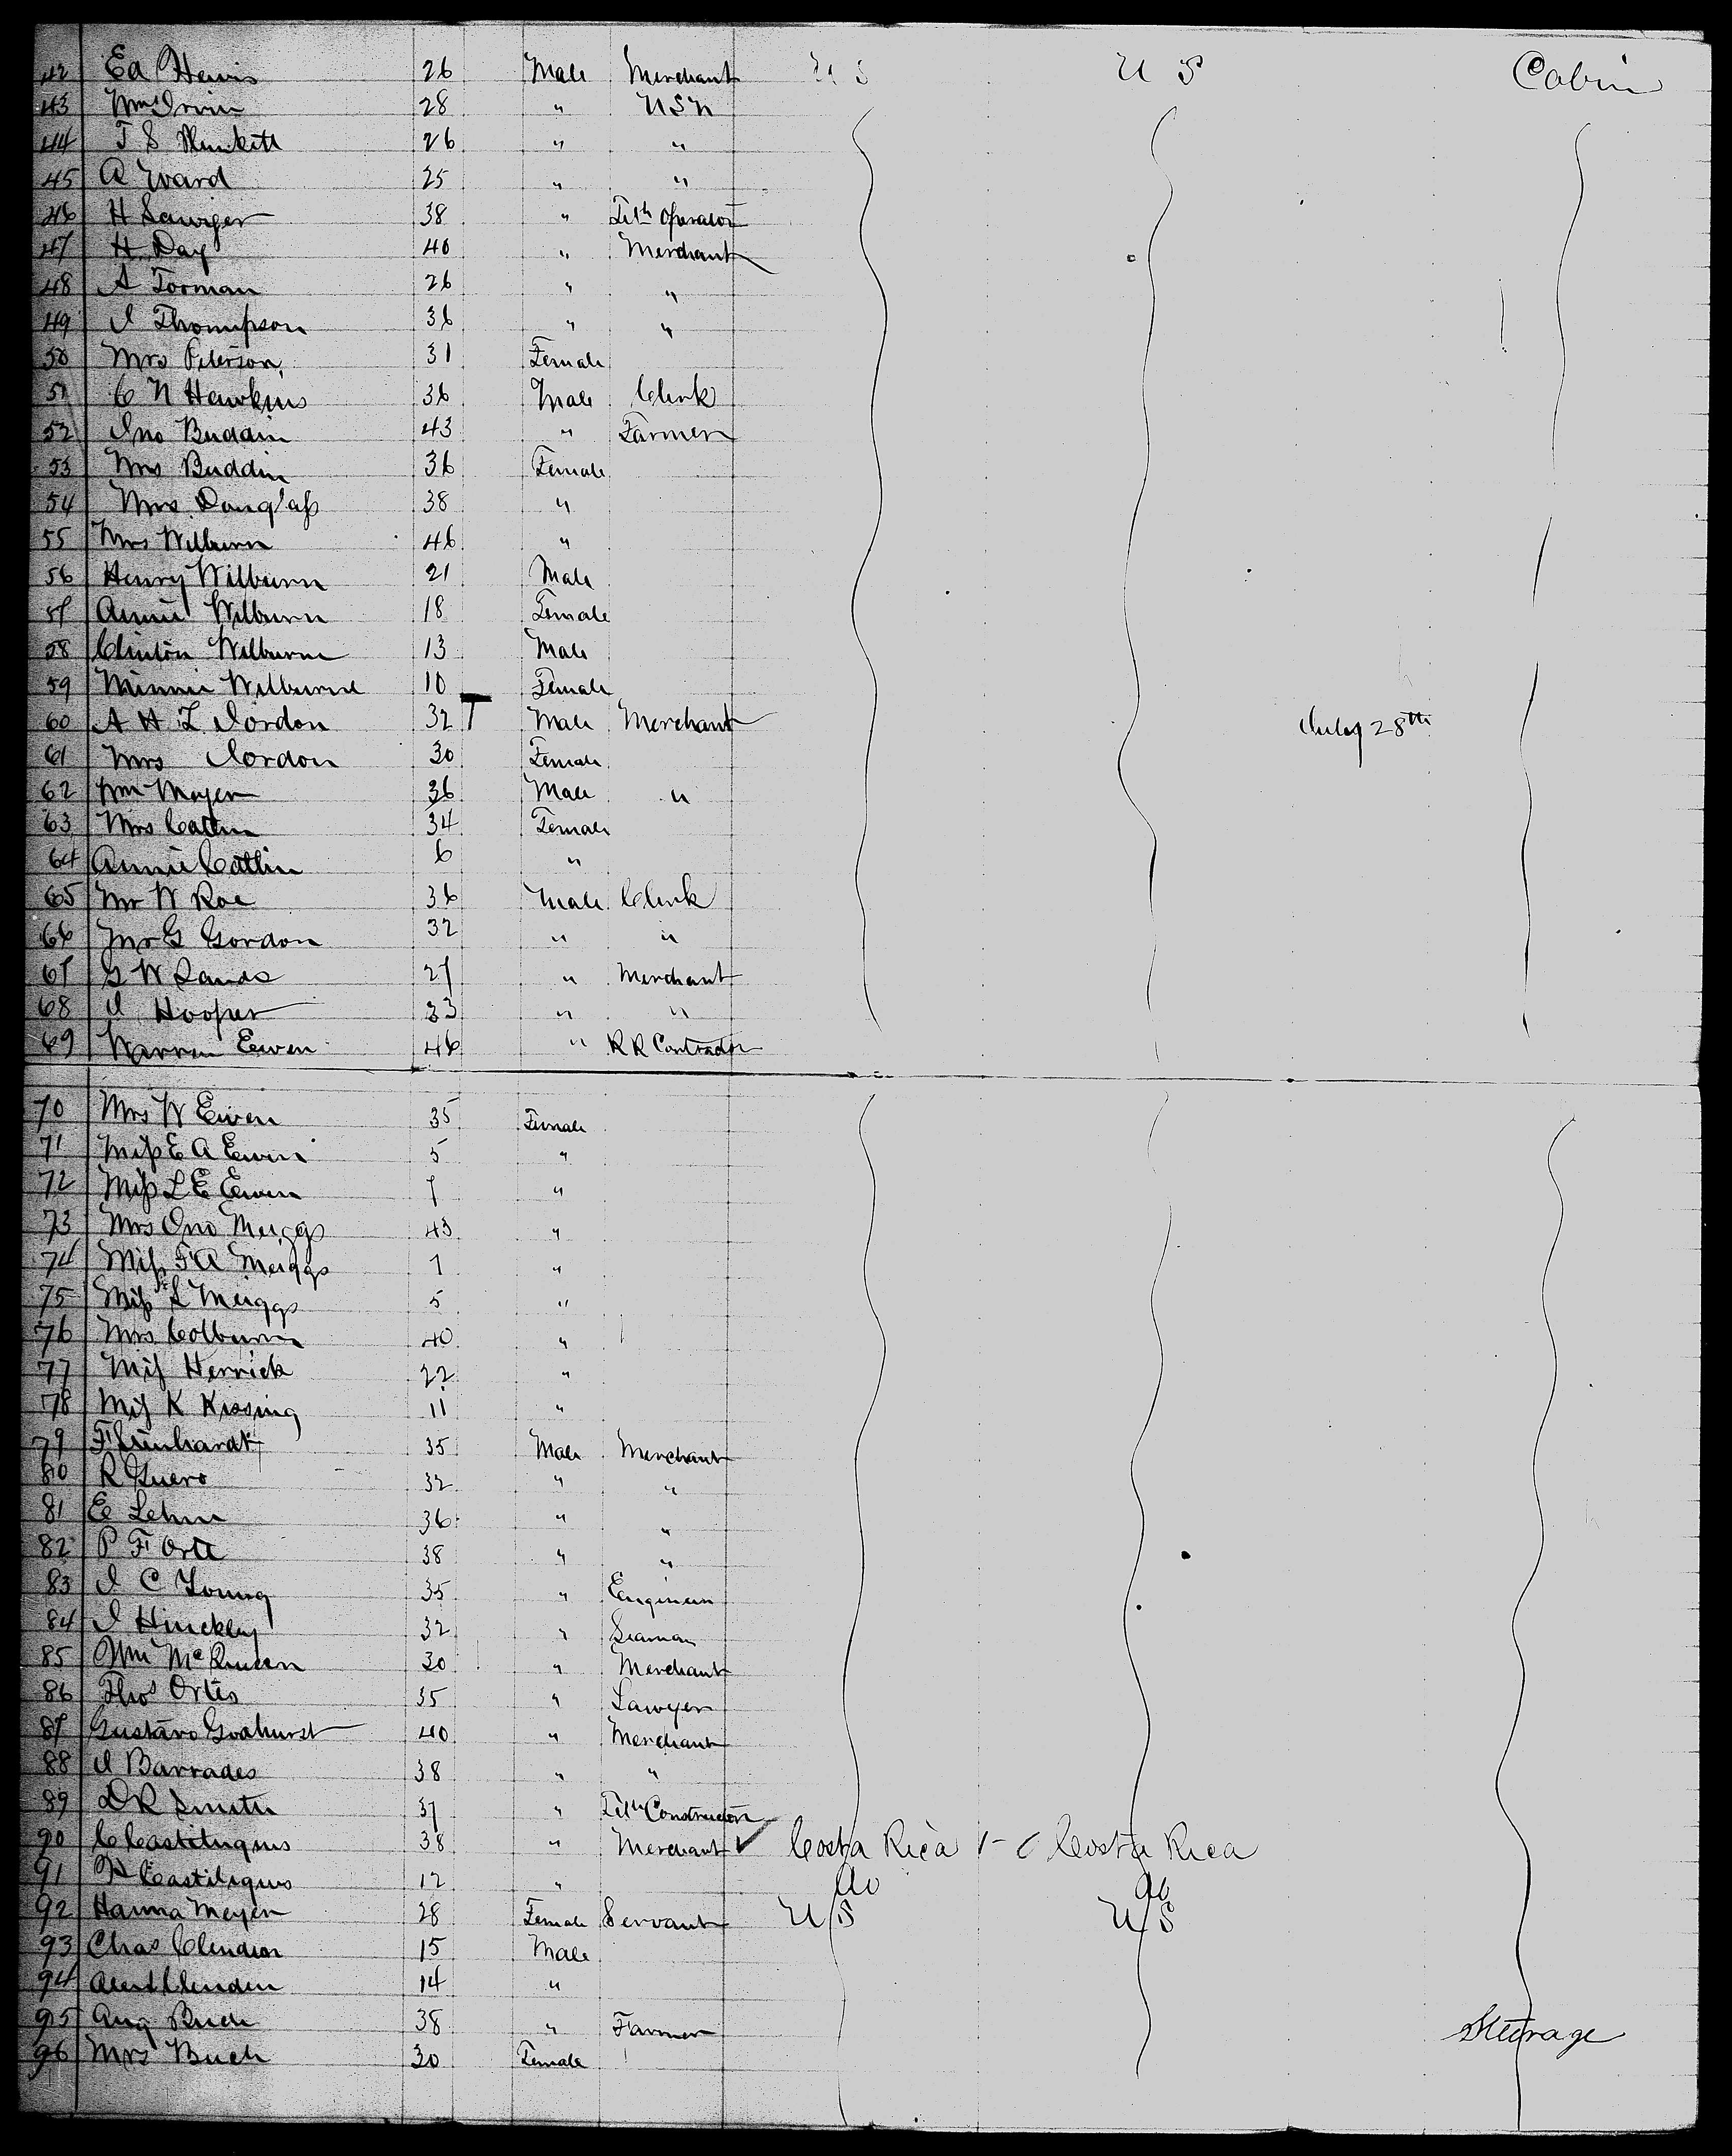 42 Ed 26 Male Merchant U S U S Cabin
43 Wm Irwin 28 " USN
44 T S Plunkett 26 " "
45 A Ward 25 " "
46 H Sawyer 38 " Telh Operator
47 H Day 40 " Merchant
48 A Torman 26 " "
49 J Thompson 36 " "
50 Mrs Peterson 31 Female
51 C N Hawkins 36 Male Clerk
52 Jno Buddin 43 " Farmer
53 Mrs Buddin 36 Female
54 Mrs Douglass 38 "
55 Mrs Wilburn 46 "
56 Henry Wilburn 21 Male
57 Annie Wilburn 18 Female
58 Clinton Wilburn 13 Male
59 Minnie Wilburne 10 Female
60 A H L Jordon 32 Male Merchant July 28th
61 Mrs Jordon 30 Female
62 Wm Meyer 36 Male "
63 Mrs Catlin 34 Female
64 Annie Catlin 6 "
65 Mr W Roe 36 Male Clerk
66 Mr G Gordon 32 " "
67 G W Sands 27 " Merchant
68 J Hooper 33 " "
69 Warren Ewen 46 " R R Contractor
70 Mrs W Ewen 35 Female
71 Miss E A Ewen 5 "
72 Miss L E Ewen 7 "
73 Mrs Jno Meiggs 43 "
74 Miss F A Meiggs 7 "
75 Miss L Meiggs 5 "
76 Mrs Colburn 40 "
77 Miss Herrick 22 "
78 Miss K Kissing 11 "
79 F Leinhardt 35 Male Merchant
80 R Guero 32 " "
81 E Lehm 36 " "
82 P F Orte 38 " "
83 J C Young 35 " Engineer
84 J Hinckley 32 " Seaman
85 Wm McQueen 30 " Merchant
86 Thos Ortes 35 " Lawyer
87 Gustavo 40 " Merchant
88 J Barrades 38 " "
89 D R Smith 37 " Telh Constructor
90 C Castilignus 38 " Merchant Costa Rica Costa Rica
91 Castilignus 12 " do do
92 Hanna Meyer 28 Female Servant U S U S
93 Chas Clenden 15 Male
94 Clenden 14 "
95 Aug Buch 38 " Farmer Steerage
96 Mrs Buch 30 Female